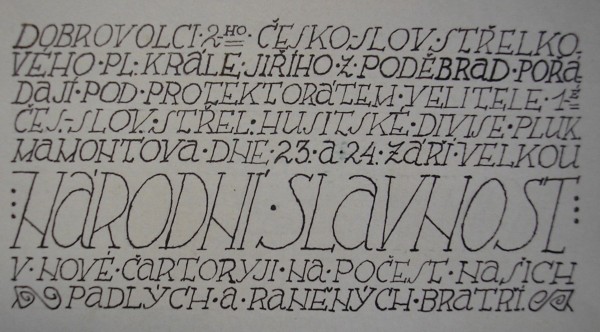 DOBROVOLCI·2HO·ČESKO·SLOV·STŘELKO
VÉHO·PL·KRÁLE·JIŘÍHO·Z·PODĚBRAD·POŘÁ
DAJÍ·POD·PROTEKTORÁTEM·VELITELE·1É
ČES·SLOV·STŘEL·HUSITSKÉ·DIVISE·PLUK
MAMONŤOVA·DNE·23·A·24·ZÁŘÍ·VELKOU
:NÁRODNÍ·SLAVNOST:
V·NOVÉ·ČARTORYJI·NA·POČEST·NAŠICH
PADLÝCH·A·RANĚNÝCH·BRATŘÍ.